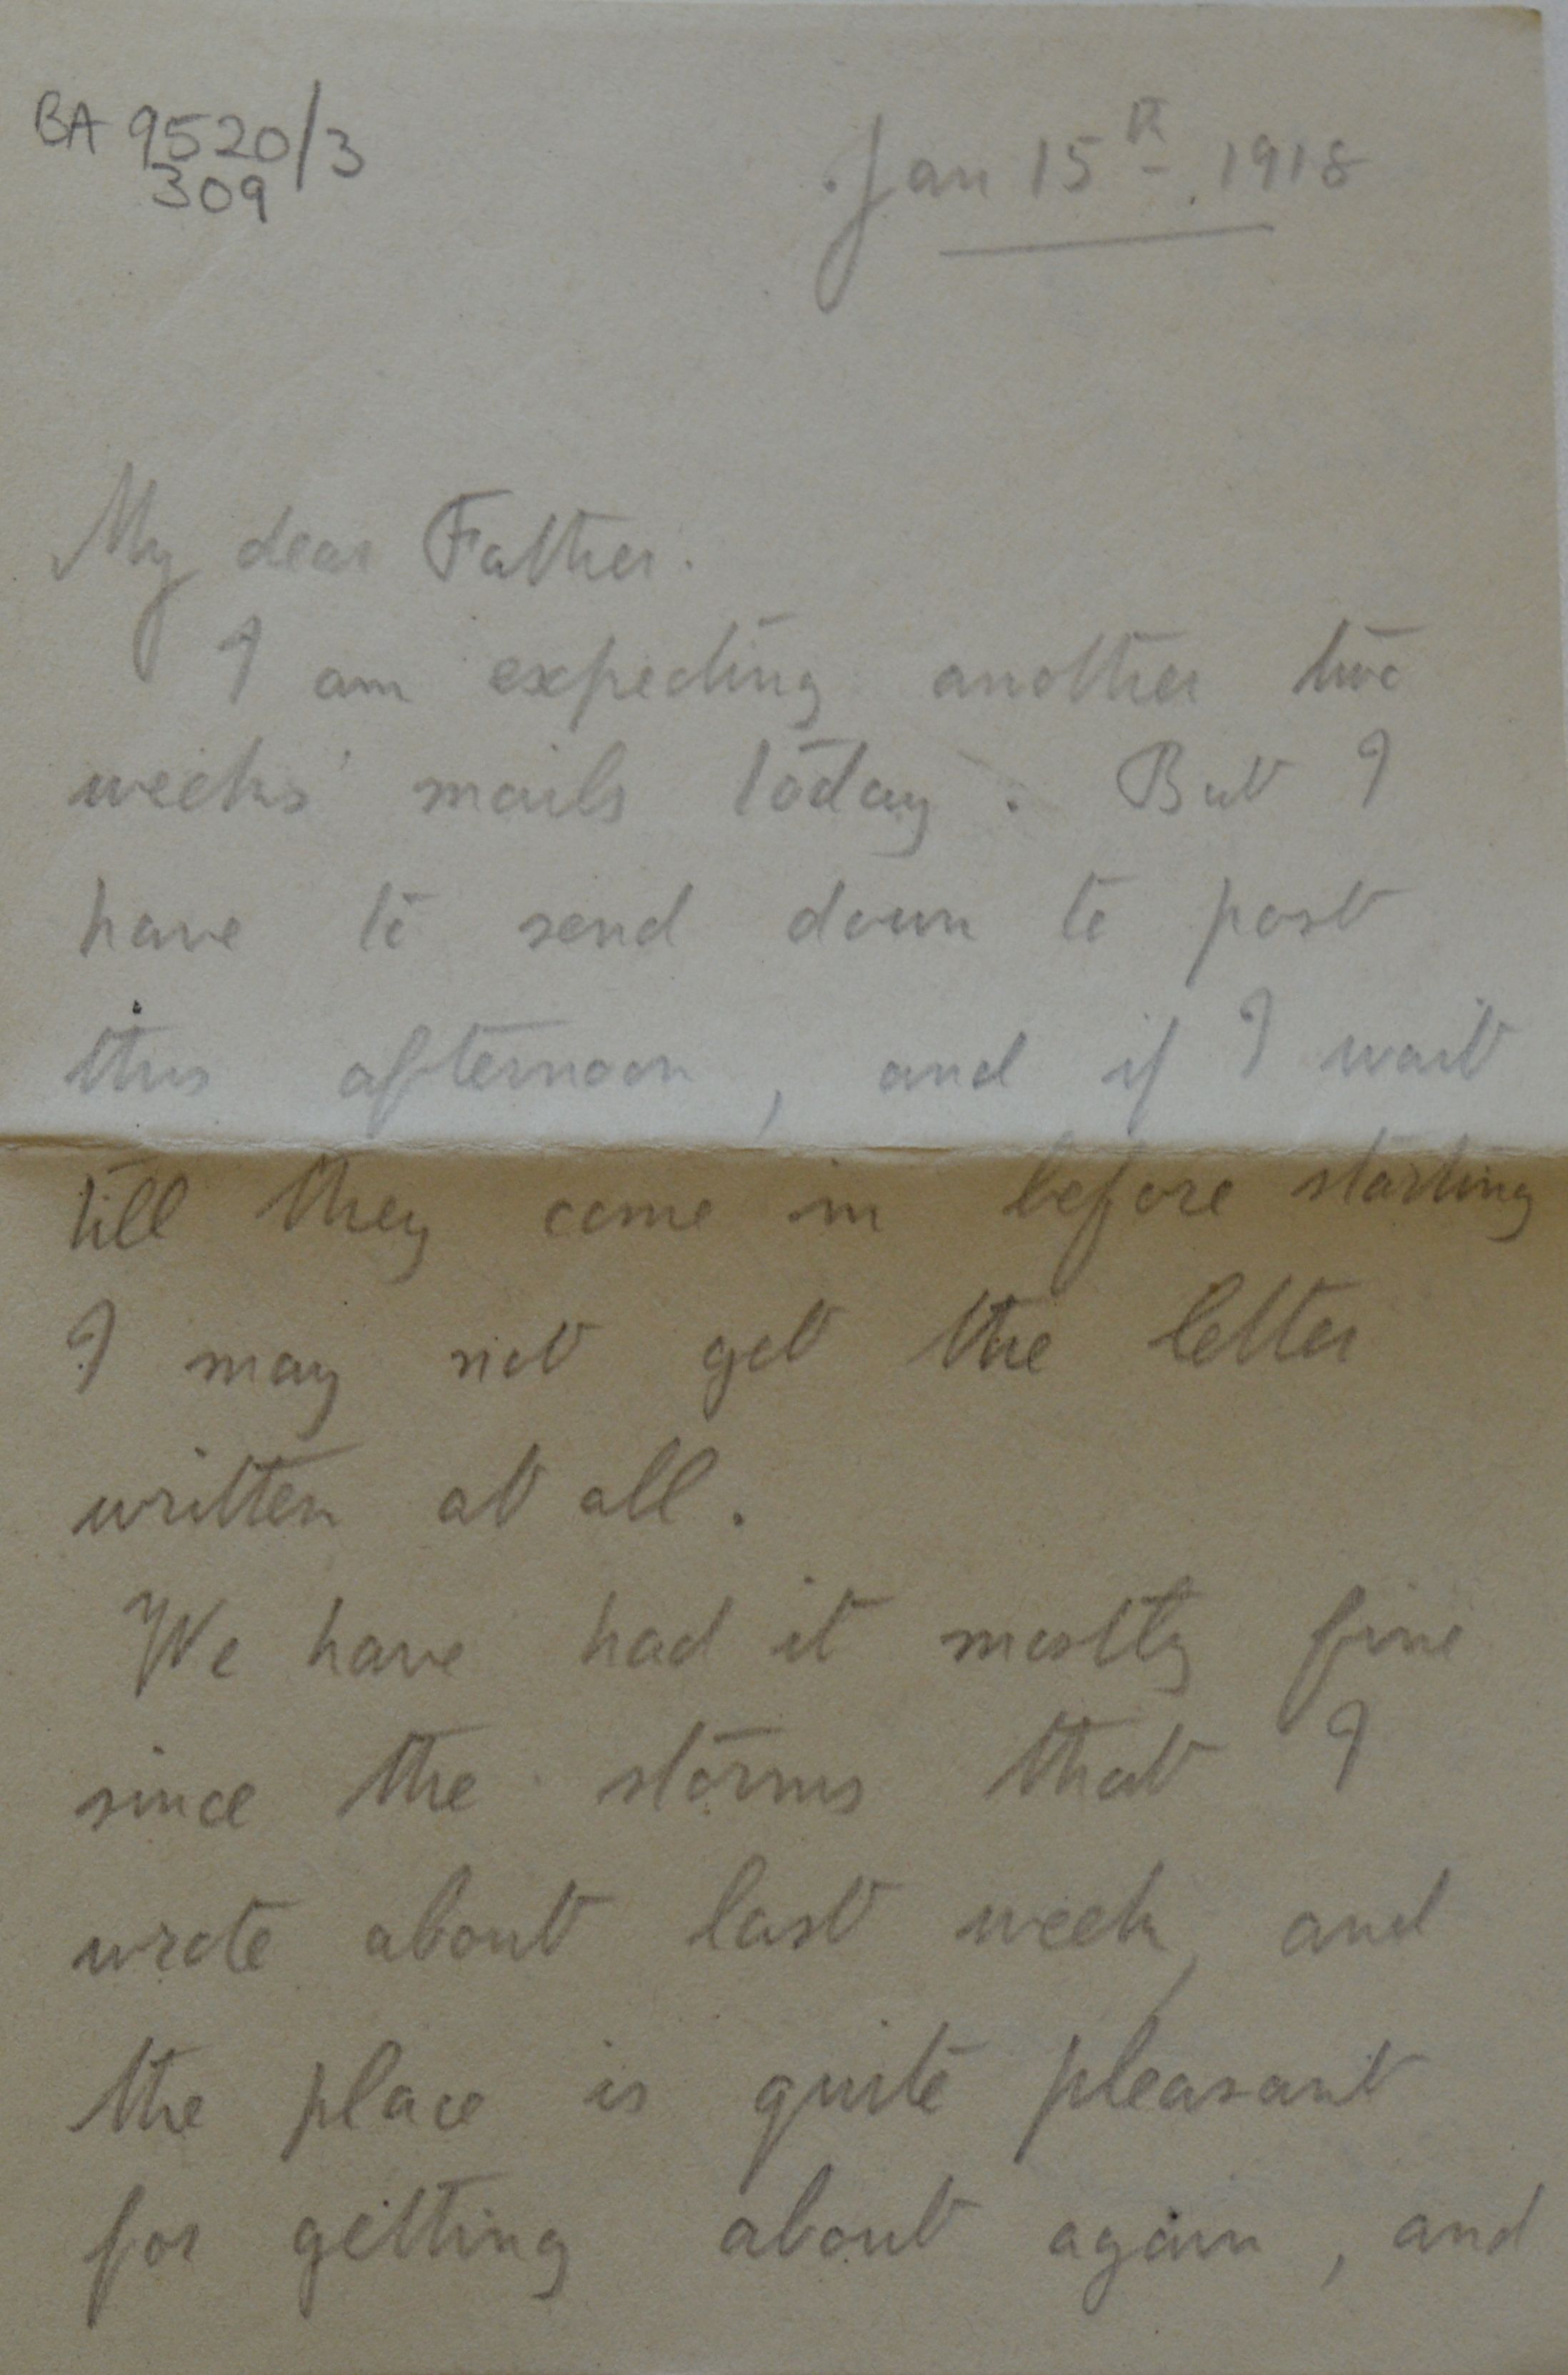 BA 9520/3
309
Jan 15th. 1918
My dear Father.
I am expecting another two
weeks' mails today. But I
have to send down to post
this afternoon, and if I wait
till they come in before starting
I may not get the letter
written at all.
We have had it mostly fine
since the storms that I
wrote about last week, and
the place is quite pleasant
for getting about again, and